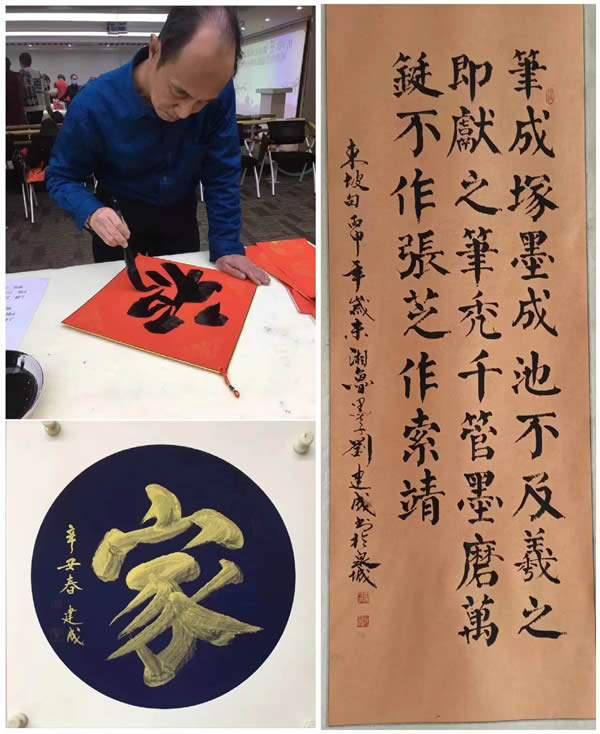 家
辛丑春 建成
筆成塚墨成池不及羲之
即獻之筆禿千管墨磨萬
鋌不作張芝作索靖
東坡句丙申年歲末湘魯墨劉建成书於泉城